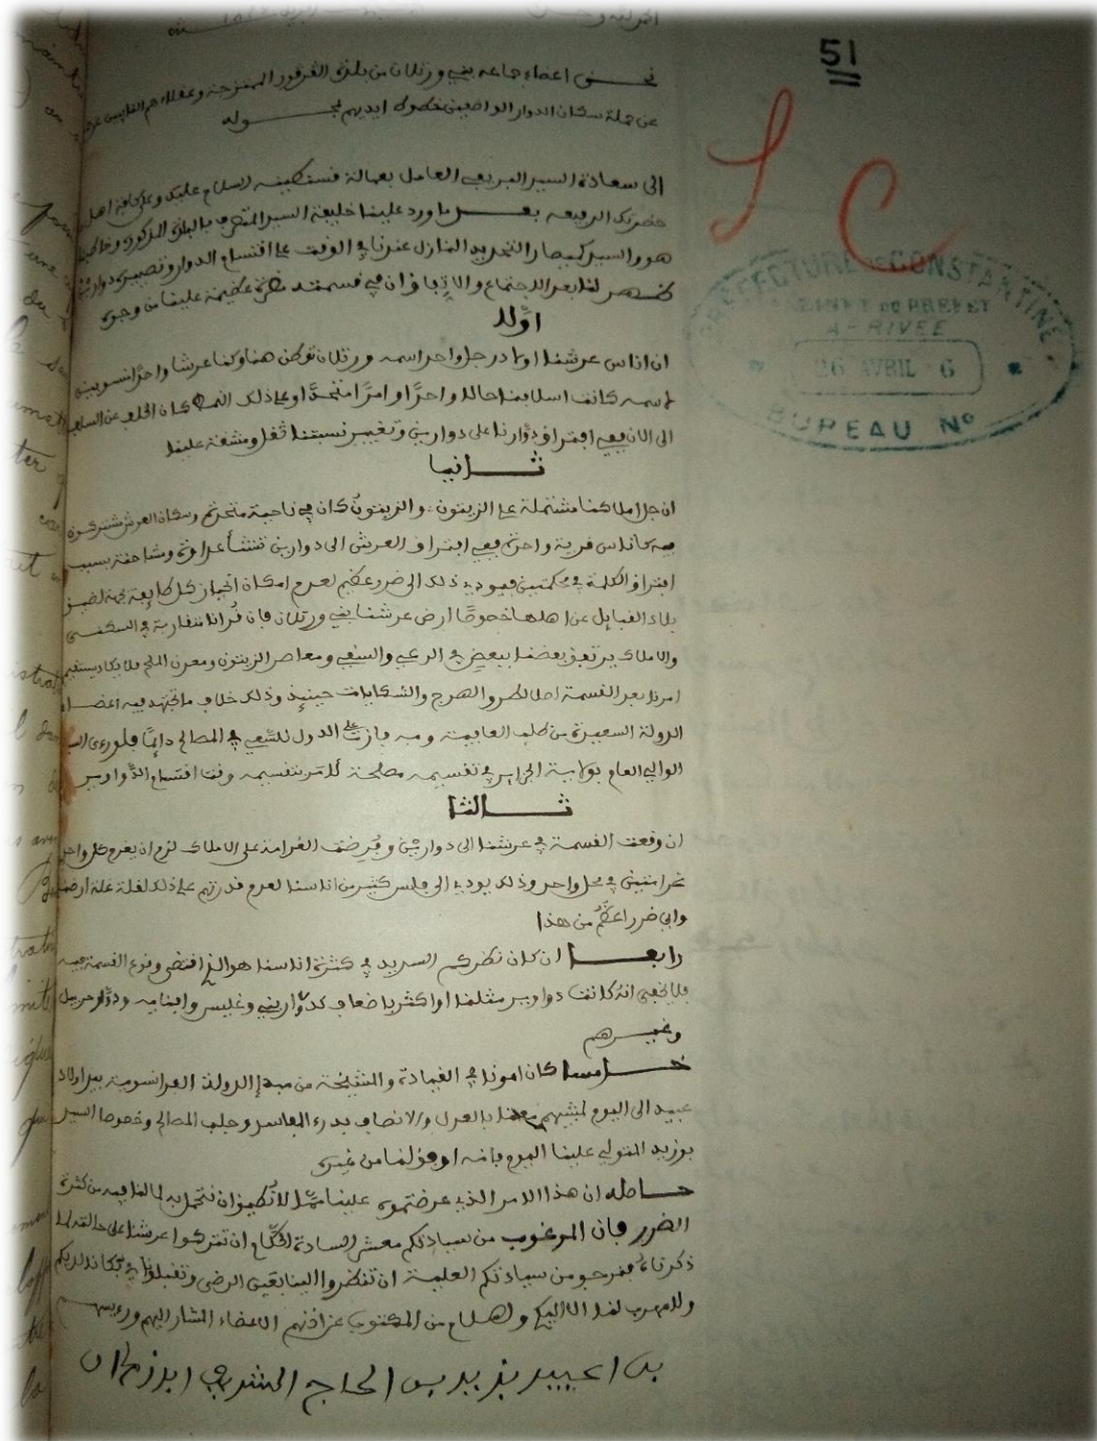 الحمد لله وحده
51
L C
PREFECTURE DE CONSTANTINE
CABINET DU PREFET
ARRIVEE
26 AVRIL 6
BUREAU Nº
نحن اعضاء جماعة بني ورتلان من بلدة القرقور الممتزجة وعقلاءهم النايبين
عن جملة سكان الدوار الواضعين خطوط ايديهم
الى سعادة السيد البريفي العامل بعمالة قسنطينة السلام عليك وعلى كافة اهل
حضرتك الرفيعة بعد ما ورد علينا خليفة السيد المتصرف بالبلدة المذكورة
هو والسيد النازل عندنا في الوقت على اقتسام الدوار وتصييره دوارين
ظهر لنا بعد الاجتماع والاتفاق ان في قسمته مضرة عظيمة علينا من وجوه
اولا
ان اناس عرشنا اولاد رجل واحد اسمه ورتلان توطن هنا وكنا عرشا واحدا منسوبين
لاسمه كانت اسلافنا حالا واحدا وامرا متحدا وعلى ذلك النمط كان الخلف عن السلف
الى الان ففي افتراق دوارنا على دوارين وتغيير نسبتنا ثقل ومشقة علينا
ثانيا
ان جل املاكنا مشتملة على الزيتون والزيتون كان في ناحية متحدة وسكان العرش مشتركون
فيه كاناس قرية واحدة ففي افتراق العرش الى دوارين تنشأ عداوة ومشاحنة بسبب
افتراق الكلمة في محكمتين فيودي ذلك الى ضرر عظيم لعدم امكان انحياز كل طايفة بجهة لضيق
بلاد القبايل عن اهلها خصوصا ارض عرشنا بني ورتلان فان قرانا متقاربة في السكنى
والاملاك يرتفق بعضنا ببعض في الرعي والسقي ومعاصر الزيتون ومعدن الملح فلا يكاد يستقيم
امرنا بعد القسمة والهرج والشكايات حينيذ وذلك خلاف ما تجتهد فيه اعضاء
الدولة السعيدة من طلب العافية وبه فازت على الدول للسعي في المصالح دايما فلو رءى السيد
الوالي العام بولاية الجزاير في تقسيمه مصلحة لامر بتقسيمه وقت اقتسام الدواوير
ثالثا
ان وقعت القسمة في عرشنا الى دوارين وفرضت الغرامة على الاملاك لزم ان يغرم كل واحد
غرامتين في محل واحد وذلك يودي الى فلس كثير من اناسنا لعدم قدرتهم على ذلك لقلة غلة ارضنا
واي ضرر اعظم من هذا
رابعا ان كان نظركم السديد في كثرة اناسنا هو الذي اقتضى وقوع القسمة فيه
فلا يخفى انه كانت دواوير مثلنا او اكثر باضعاف كدوار بني وغليس وافنايه ودوار
وغيرهم
خامسا كان امرنا في القيادة والمشيخة من مبدإ الدولة الفرانسوية بيد اولاد
عبيد الى اليوم لمشيهم معنا بالعدل والانصاف بدرء المفاسد وجلب المصالح وخصوصا السيد
بوزيد المتولي علينا اليوم فانه اوفق لنا من غيره
حاصله ان هذا الامر الذي عرضتموه علينا مما لا نطيق ان نتحمل به لما لنا فيه من كثرة
الضرر فان المرغوب من سيادتكم معشر السادة الحكام ان تتركوا عرشنا على حالته لما
ذكرناه فنرجو من سيادتكم العلية ان تنظروا الينا بعين الرضى وتقبلونا
ولا مهرب لنا الا اليكم والسلام من المكتوب عن اذنهم الاعضاء المشار اليهم وريسهم
بن اعبيد بزيد بن الحاج الشريف